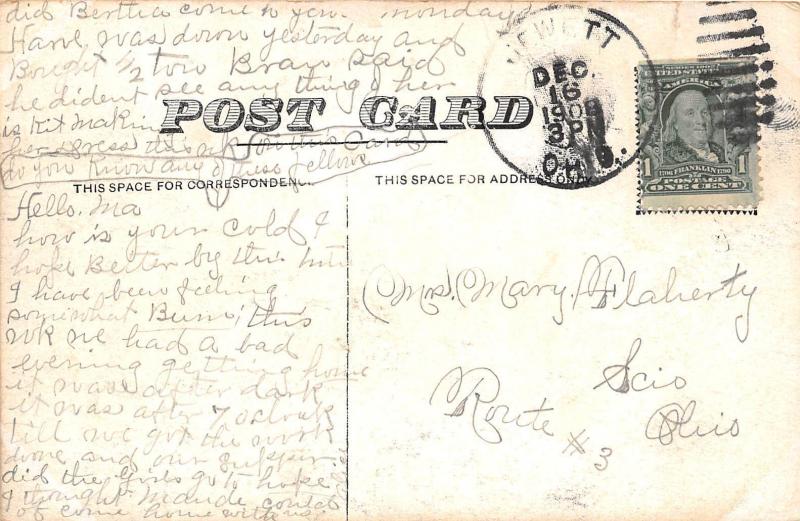 did Bertha come to your monday
Harve was down yesterday and
Bought 1/2 ton Bran said
he dident see any thing of her
is Kit Making
her dress this wk
on this Card
do you know any of these fellows
POST CARD
THIS SPACE FOR CORRESPONDENCE
THIS SPACE FOR ADDRESS ONLY
JEWETT
DEC.
16
1909
3 P
OHIO.
UNITED STATES
OF AMERICA
1706 FRANKLIN 1790
1 POSTAGE 1
ONE CENT
Hello, Ma
how is your cold I
hope Better by this time
I have been feeling
somewhat Bum this
wk we had a bad
evening getting home
it was after dark
it was after 7 oclock
till we got the work
done and our supper.
did the Girls go to hope
I thought Maude could
of come home with us
Mrs. Mary Flaherty
Scio
Route #3 Ohio